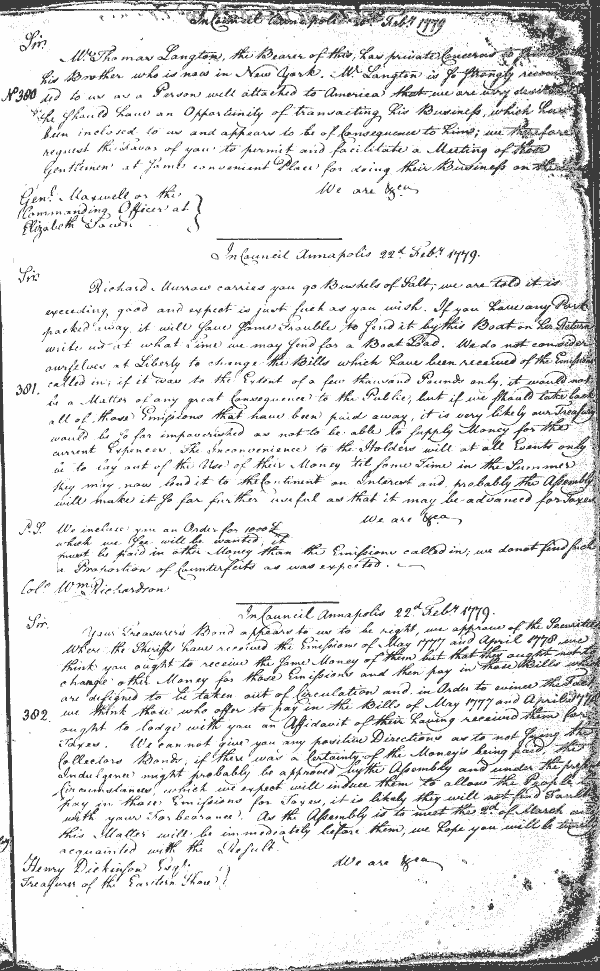 In Council Annapolis 20th Feby 1779
Sir.
Mr Thomas Langton, the Bearer of this, has private Concerns to
his Brother who is now in New York. Mr Langton is so strongly
No 380
ted to us as a Person well attached to America that we are very
he should have an Opportunity of transacting his Business, which
been inclosed to us and appears to be of Consequence to him; we therefore
request the favor of you to permit and facilitate a Meeting of these
Gentlemen at some convenient Place for doing their Business on the
We are &ca
Genl Maxwell or the
Commanding Officer at
Elizabeth Town.
In Council Annapolis 22d Feby 1779.
Sir.
Richard Murrow carries you 90 Bushels of Salt; we are told it is
exceeding good and expect is just such as you wish. If you have any Pork
packed away, it will save some Trouble to send it by this Boat on his Return
write us at what Time we may send for a Boat Load. We do not consider
ourselves at Liberty to change the Bills which have been received of the Emissions
381.
called in; if it was to the Extent of a few thousand Pounds only, it would not
be a Matter of any great Consequence to the Public, but if we should take back
all of those Emissions that have been paid away, it is very likely our Treasury
would be so far impoverished as not to be able to supply Money for the
current Expences. The Inconvenience to the Holders will at all Events only
be to lay out of the Use of their Money 'til some Time in the Summer
they may now lend it to the Continent on Interest and probably the Assembly
will make it so far further useful as that it may be advanced for Taxes
We are &ca
P.S. We inclose you an Order for 1000£
which we see will be wanted; it
must be paid in other Money than the Emissions called in; we do not find such
a Proportion of Counterfeits as was expected.
Colo Wm Richardson
In Council Annapolis 22d Feby 1779.
Sir.
Your Treasurer's Bond appears to us to be right, we approve of the Securities
Where the Sheriffs have received the Emissions of May 1777 and April 1778 we
think you ought to receive the same Money of them but that they ought not to
change other Money for those Emissions and then pay in those Bills which
are designed to be taken out of Circulation and in Order to evince the Fact
382.
we think those who offer to pay in the Bills of May 1777 and April 1778
ought to lodge with you an Affidavit of their having received them for
Taxes. We cannot give you any positive Directions as to not suing the
Collectors Bonds; if there was a Certainty of the Money's being paid, the
Indulgence might probably be approved by the Assembly and under the
Circumstances, which we expect will induce them to allow the People to
pay in those Emissions for Taxes, it is likely they will not find Fault
with your Forbearance. As the Assembly is to meet the 2d of March and
this Matter will be immediately before them, we hope you will be
acquainted with the Result.
We are &ca
Henry Dickinson Esqr
Treasurer of the Eastern Shore